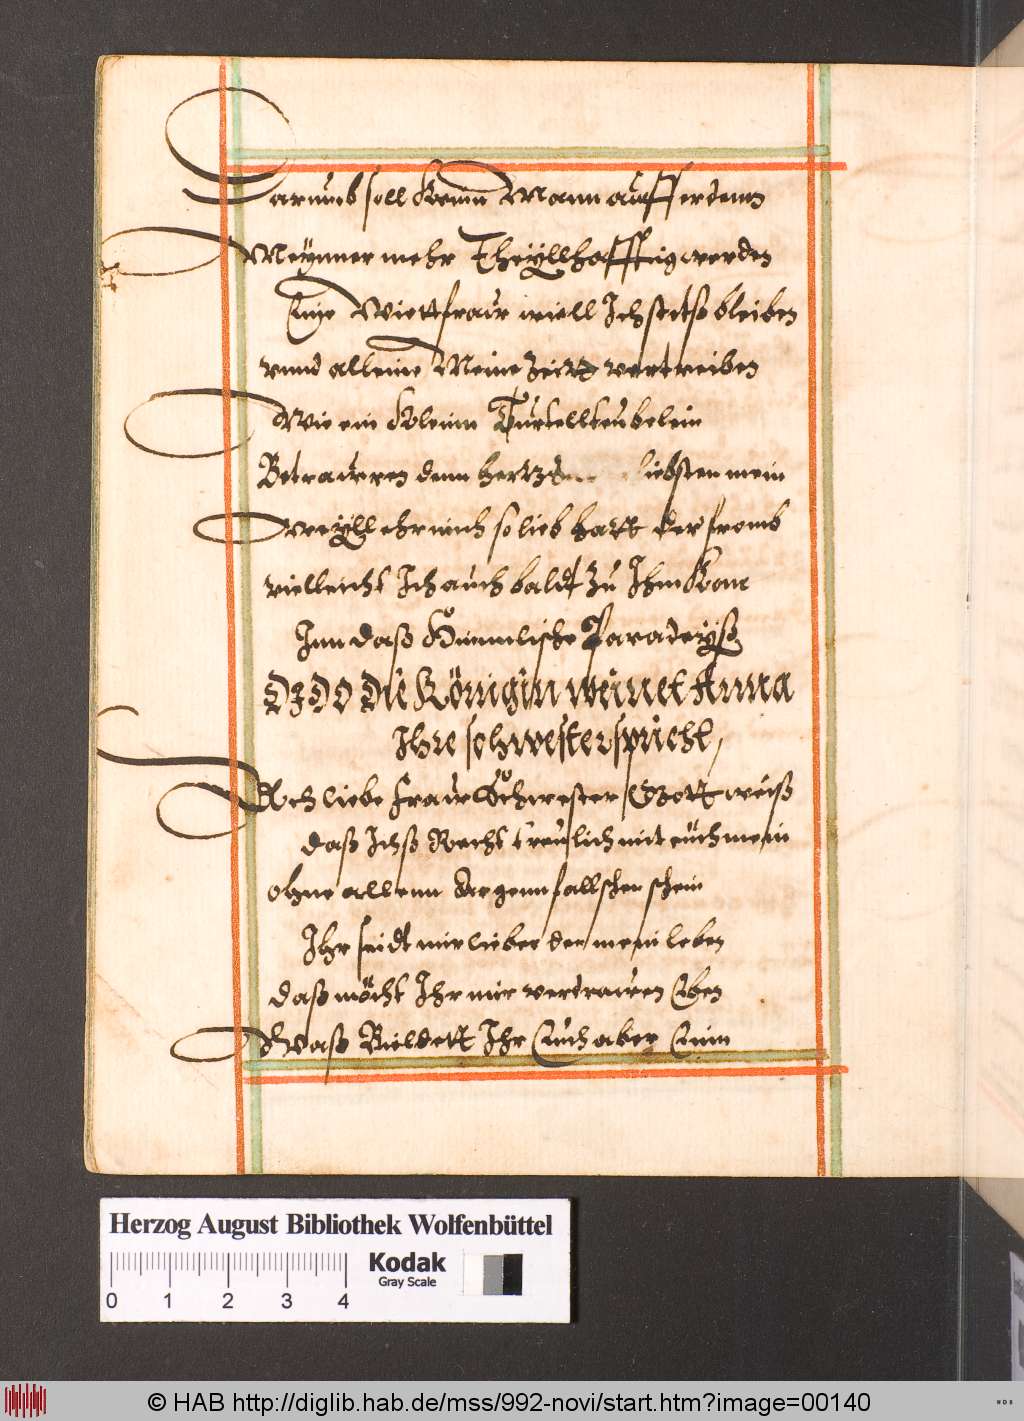 Darumb soll Keinn Mann auff erdenn
Meÿnner mehr Theÿllhafftig werden
Eine Wiettfraw wiell Ich stetsß bleiben
vnnd alleine Meine Zeitt vertreiben
Wie ein Kleinn Turtellteubelein
Betrawren denn hertz liebsten mein
weÿll ehr mich so lieb hatt der fromb
vielleicht Ich auch baldt Zu Ihm Kom
Inn daß Himmlische Paradeÿß
DIDO die Königin weinet Anna
Ihre schwester spricht,
Ach liebe fraw Schwester Gott weiß
daß Ichß Recht treulich mit euch mein
ohne allenn Argenn fallschen schein
Ihr seidt mir lieber den mein leben
daß möcht Ihr mir vertrawen Eben
Waß Bieldett Ihr Euch aber Einn
Herzog August Bibliothek Wolfenbüttel
Kodak
Gray Scale
0 1 2 3 4
© HAB http://diglib.hab.de/mss/992-novi/start.htm?image=00140